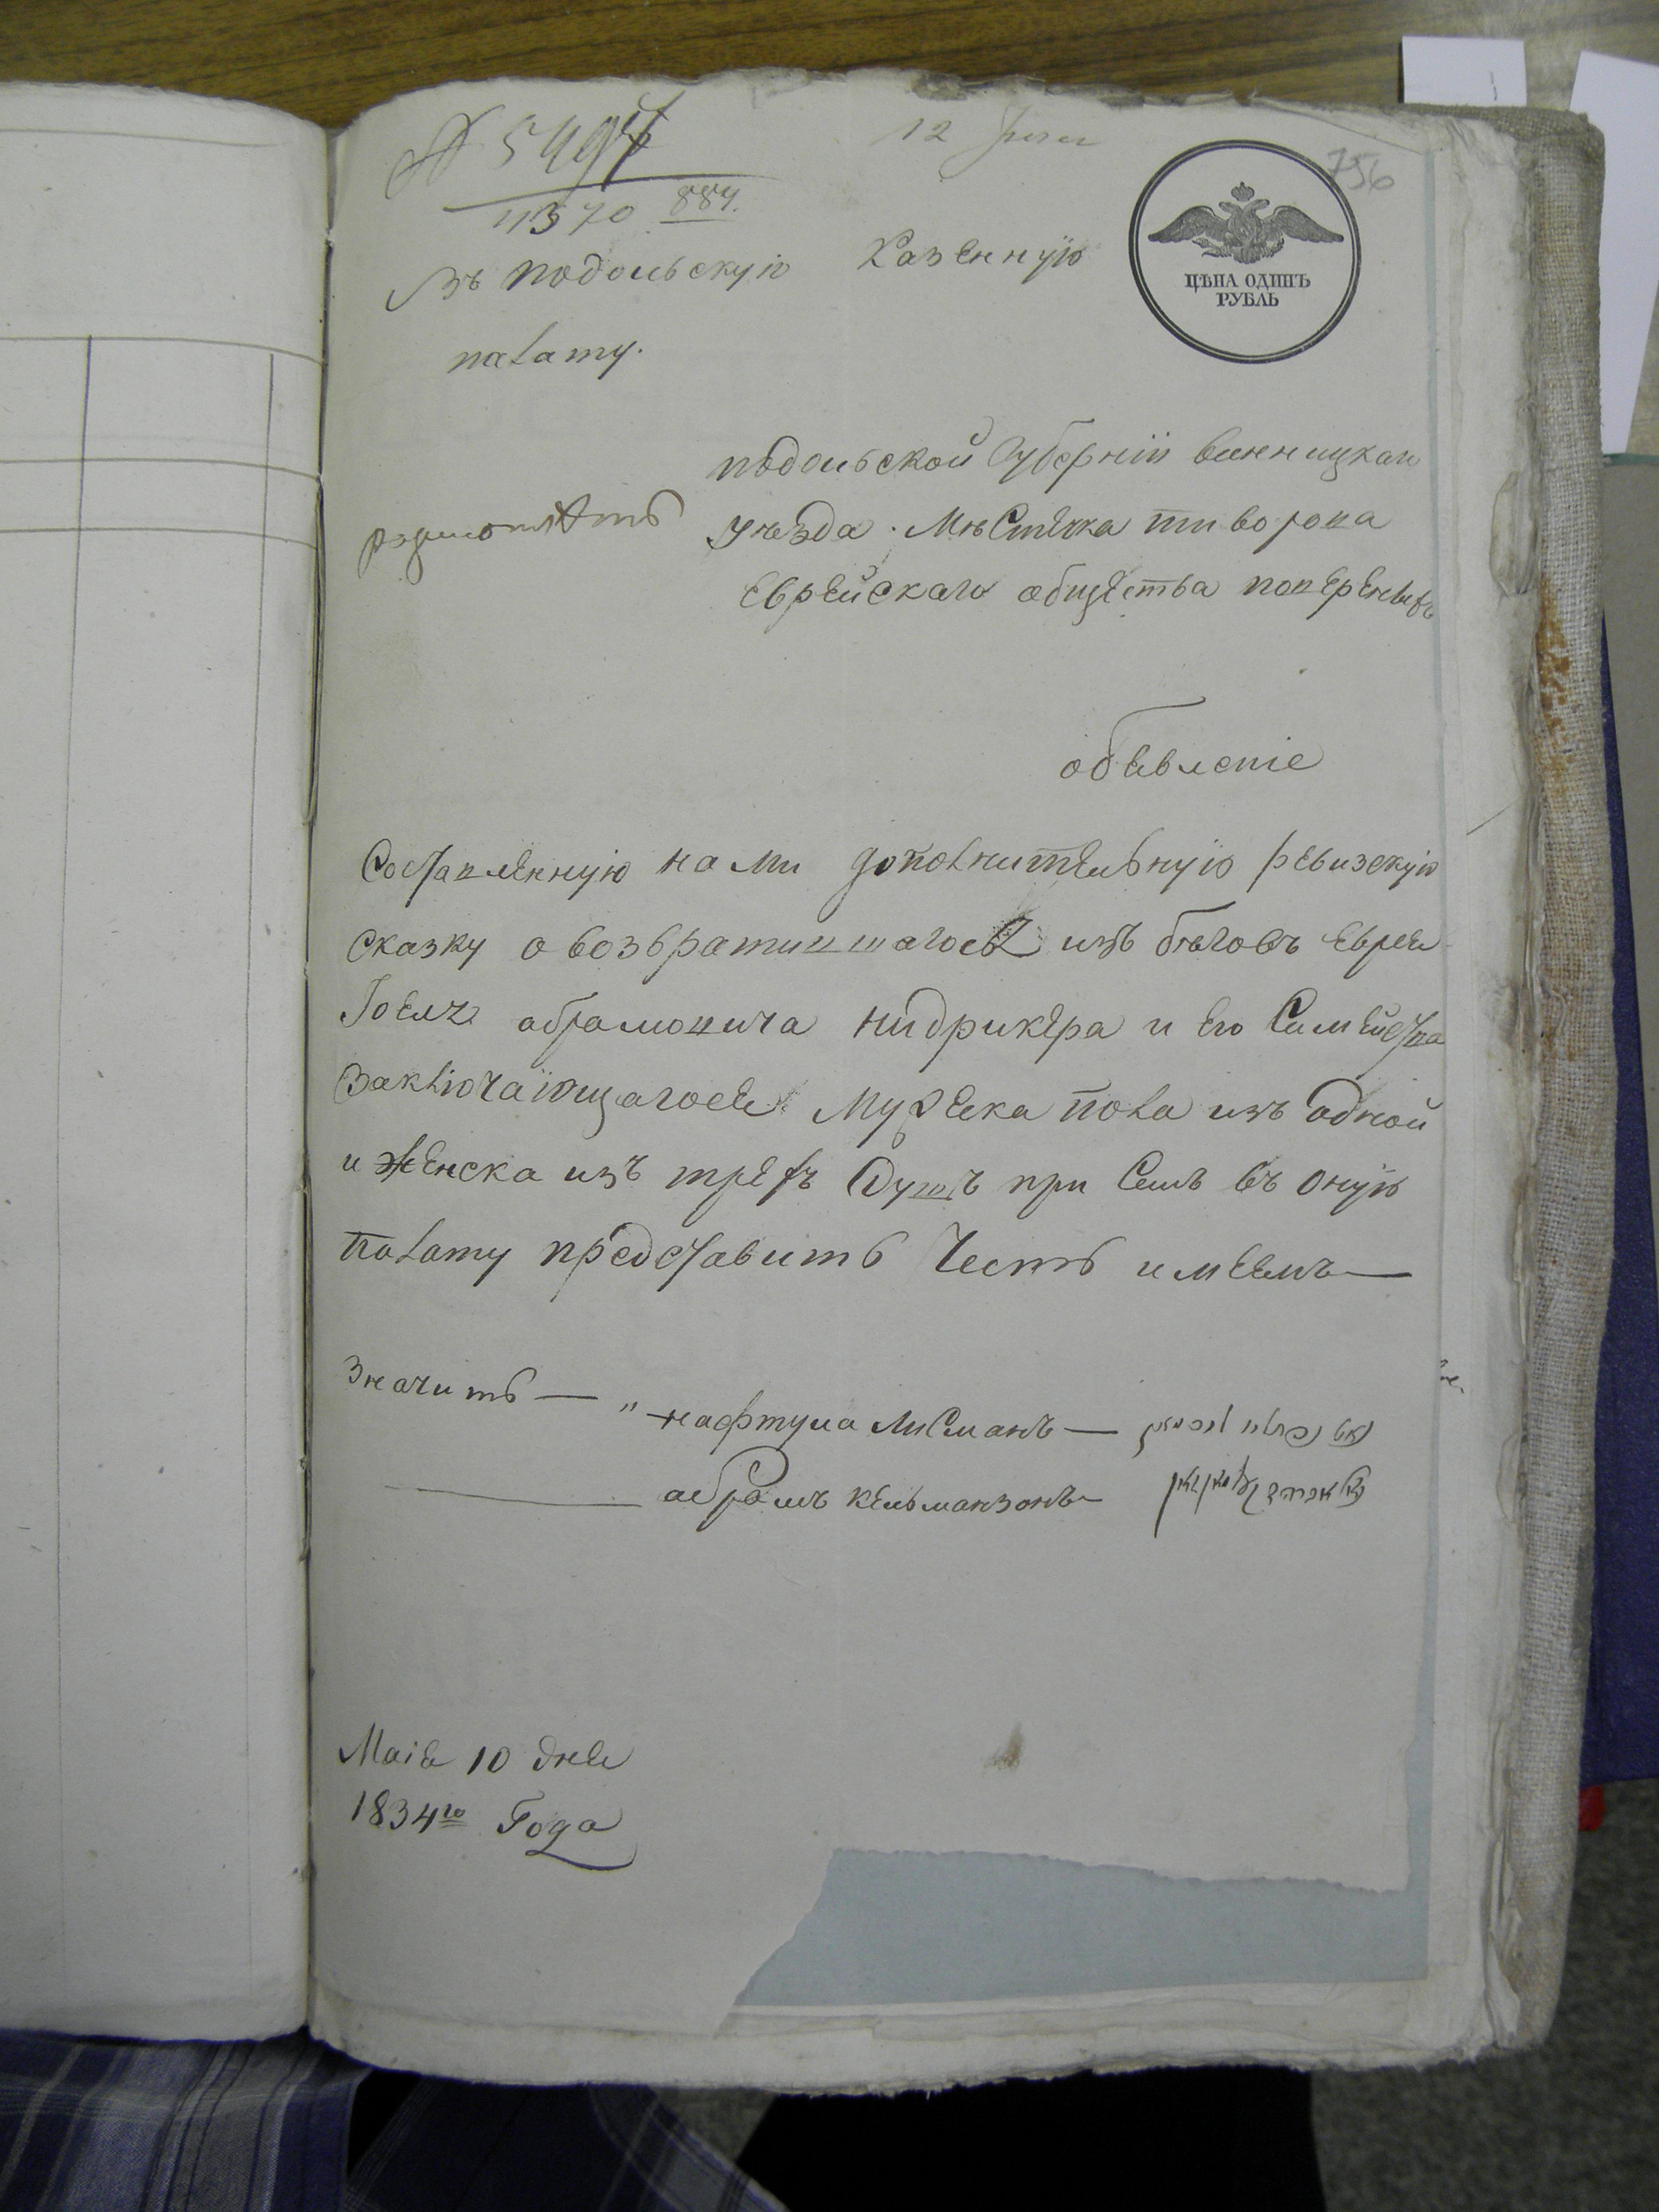 № 5494
12 Іюня
756
11370 884.
Въ подольскую Казенную
ЦѢНА ОДИНЪ
РУБЛЬ
палату.
подольской Губерніи винницкаго
уѣзда. Мѣстечка тиврова
Еврейскаго общества повереныхъ
обявленіе
Составленную нами дополнительную ревизскую
сказку о возвратившагося изъ бѣговъ еврея
абрамовича нидрикера и его Симейства
заключающагося мужеска пола изъ одной
и женска изъ трехъ душъ при Семъ въ оную
палату представить Честь имеемъ —
Значитъ — " нафтула Лисманъ —
абрамъ кельманзонъ —
Маія 10 дня
1834го Года